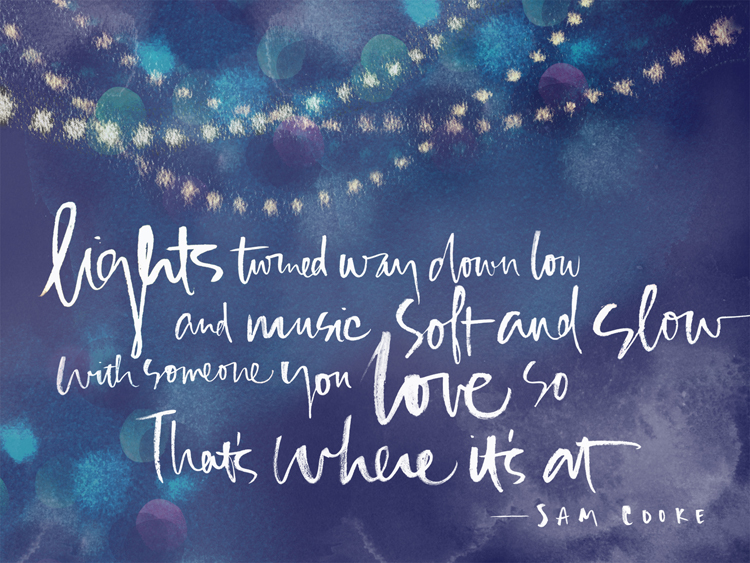 lights turned way down low
and music soft and slow
with someone you love so
That's where it's at
— SAM COOKE